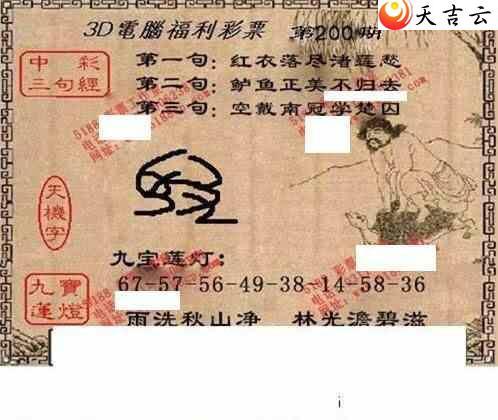 天吉云
3D電腦福利彩票 第200期
中彩
三句經
第一句：红衣落尽渚莲愁
第二句：鲈鱼正美不归去
第三句：空戴南冠学楚囚
天機字
九宝莲灯：
九寶
蓮燈
67-57-56-49-38-14-58-36
雨洗秋山净 林光澹碧滋
i